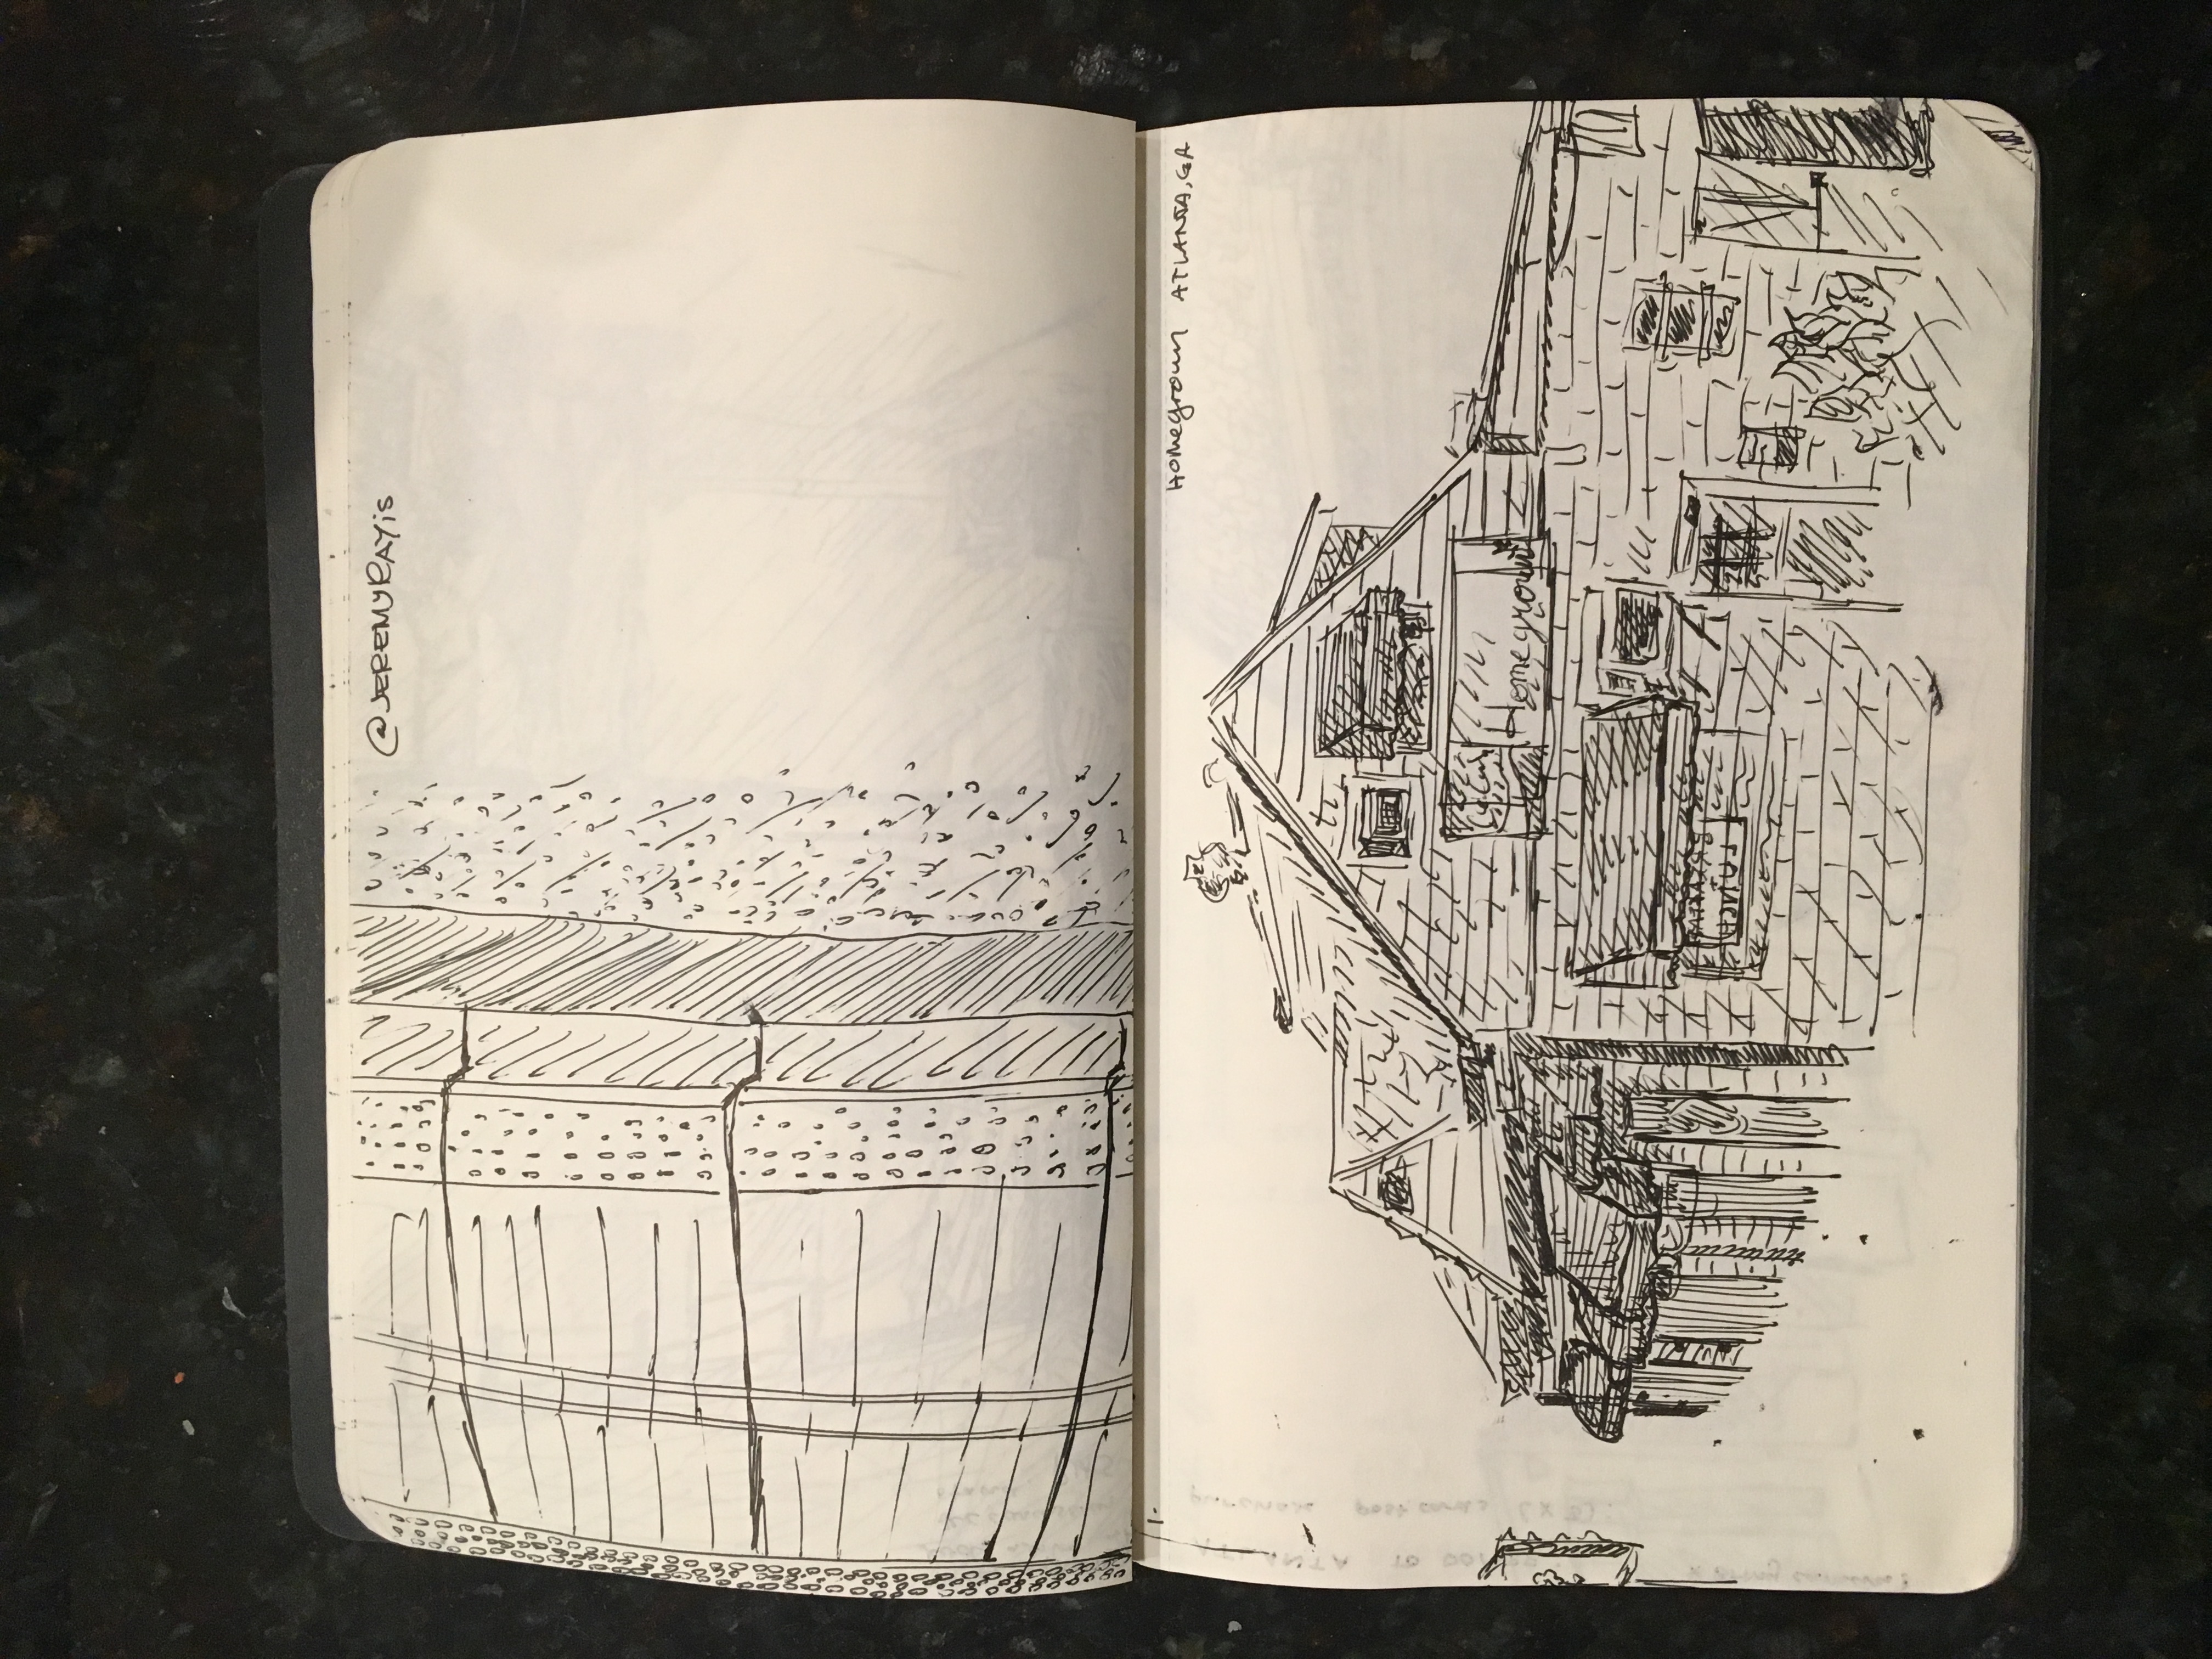 @JEREMYRAYiS
Homegrown ATLANTA, GA
Homegrown
BREAKFAST
LUNCH